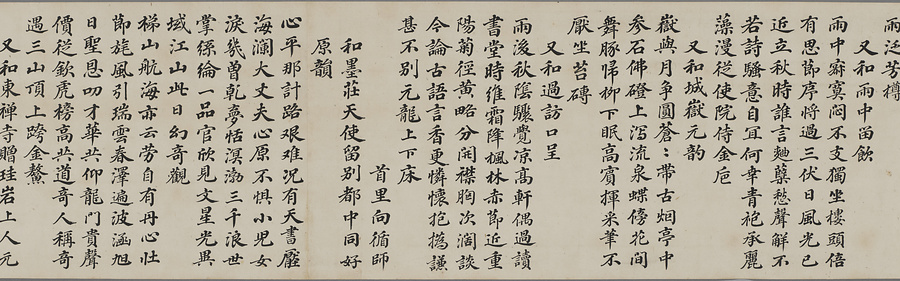 雨泛芳樽
又和雨中留飲
雨中寂寞悶不支獨坐樓頭倍
有思節序將過三伏日風光已
近立秋時誰言麯蘖愁聲解不
若詩騷意自宜何幸青袍承麗
藻漫從使院侍金卮
又和城嶽元韵
嶽與月爭圓蒼〻帶古烟亭中
参石佛磴上瀉流泉蝶傍花間
舞豚歸柳下眠高賓揮釆筆不
厭坐苔磚
又和過訪口呈
雨後秋陰驟覺凉高軒偶過讀
書堂時維霜降楓林赤節近重
陽菊徑黃略分閑襟胸次濶談
今論古語言香更憐懷抱撝謙
甚不別元龍上下床
首里向循師
和墨莊天使留別都中同好
原韻
心平那計路艰难况有天書壓
海瀾大丈夫心原不惧小児女
淚幾曽乾夣恬溟渤三千浪世
掌綵綸一品官欣見文星光異
域江山此日幻奇觀
梯山航海亦云劳自有丹心壮
節旄風引瑞雲春澤遍波涵旭
日聖恩叨才華共仰龍門貴聲
價從欽虎榜高共道奇人稱奇
遇三山頂上跨金鰲
又和東禅寺贈珪岩上人元